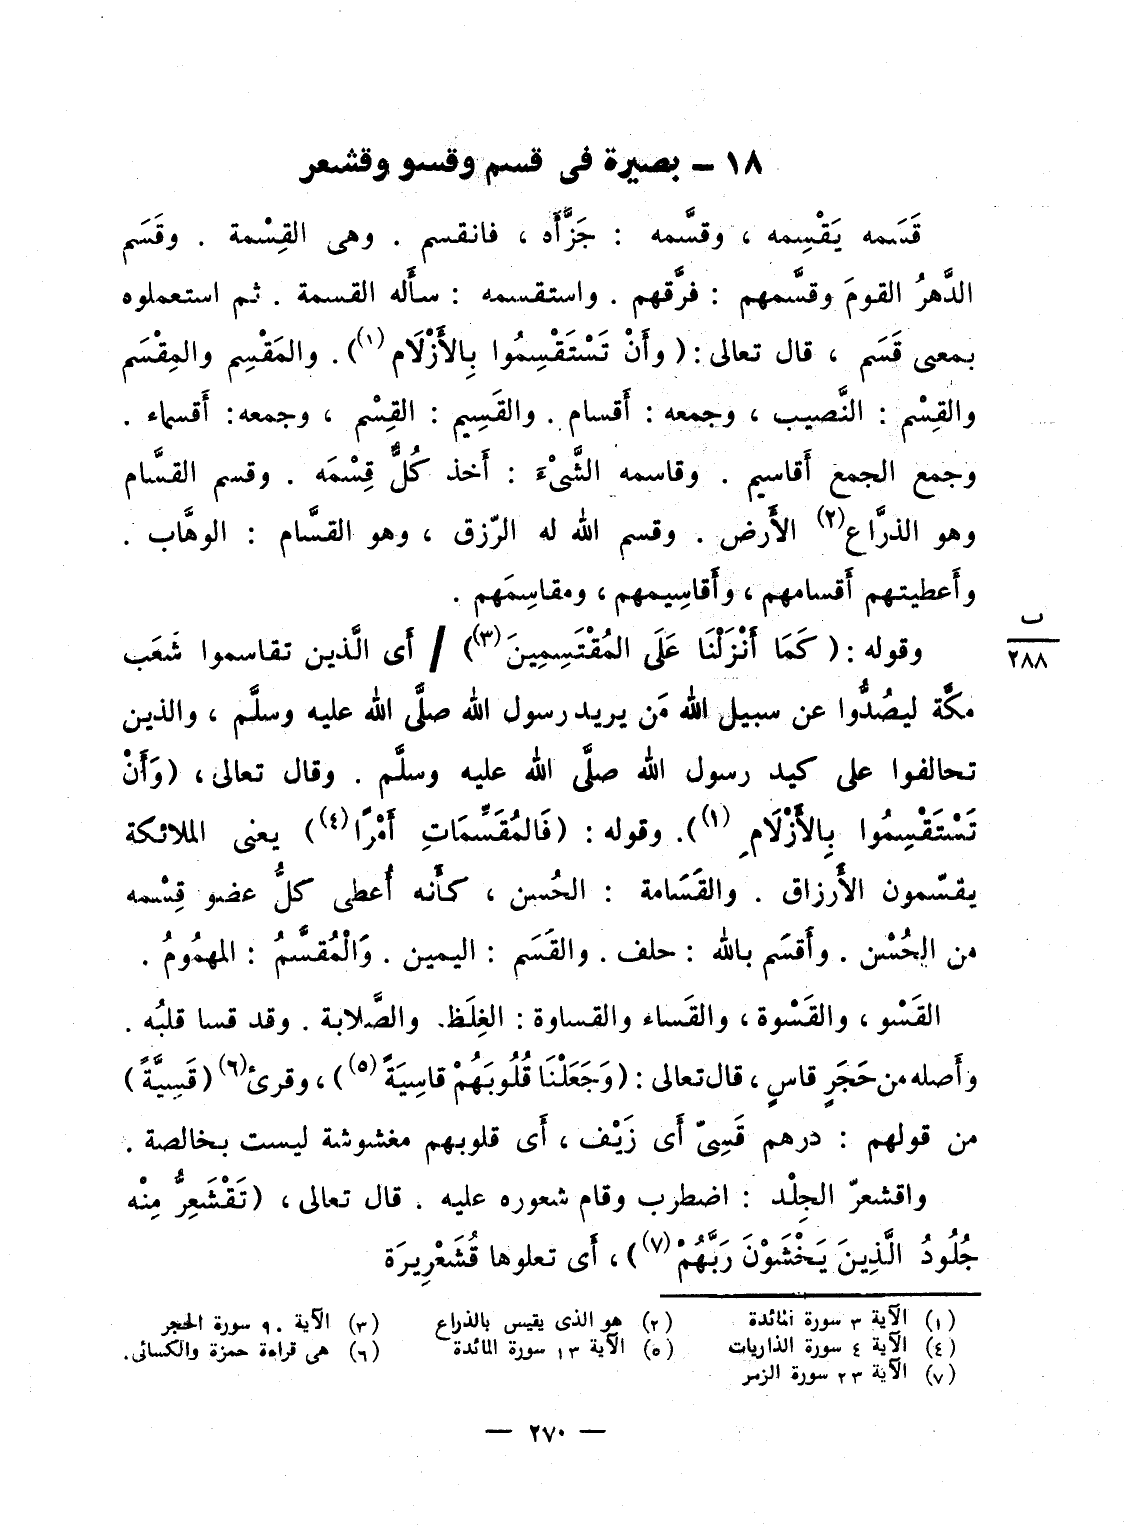 ١٨ – بصيرة فى قسم وقسو وقشعر
قَسَمه يَقْسِمه ، وقسَّمه : جَزَّأَه ، فانقسم . وهى القِسْمة . وقَسَم
الدَّهرُ القومَ وقسَّمهم : فرَّقهم . واستقسمه : سأَله القسمة . ثم استعملوه
بمعنى قَسَم ، قال تعالى : ( وأَنْ تَسْتَقْسِمُوا بِالأَزْلَام (١) ) . والمَقْسِم والمِقْسَم
والقِسْم : النَّصيب ، وجمعه : أَقسام . والقَسِيم : القِسْم ، وجمعه : أَقسماء .
وجمع الجمع أَقاسيم . وقاسمه الشَّىْءَ : أَخذ كُلٌّ قِسْمَه . وقسم القسَّام
وهو الذرَّاع (٢) الأَرض . وقسم الله له الرّزق ، وهو القسَّام : الوهَّاب .
وأَعطيتهم أَقسامهم ، وأَقاسِيمهم ، ومقاسِمَهم .
وقوله : ( كَمَا أَنْزَلْنَا عَلَى المُقْتَسِمِينَ (٣) ) / أَى الَّذين تقاسموا شُعَب
ب
٢٨٨
مكَّة ليصُدُّوا عن سبيل الله مَن يريد رسول الله صلَّى الله عليه وسلَّم ، والذين
تحالفوا على كيد رسول الله صلَّى الله عليه وسلَّم . وقال تعالى ، (وَأَنْ
تَسْتَقْسِمُوا بِالأَزْلَامِ (١) ) . وقوله : (فَالمُقَسِّمَاتِ أَمْرًا (٤) ) يعنى الملائكة
يقسّمون الأَرزاق . والقَسَامة : الحُسن ، كأَنه أُعطى كلُّ عضو قِسْمه
من الحُسْن . وأَقسَم بالله : حلف . والقَسَم : اليمين . وَالْمُقسَّمُ : المهمُومُ .
القَسْو ، والقَسْوة ، والقَساء والقساوة : الغِلَظ والصَّلابة . وقد قسا قلبُه .
وأَصله من حَجَرٍ قاسٍ ، قال تعالى : ( وَجَعَلْنَا قُلُوبَهُمْ قاسِيَةً (٥) ) ، وقرئ (٦) ( قَسِيَّةً )
من قولهم : درهم قَسِىّ أَى زَيْف ، أَى قلوبهم مغشوشة ليست بخالصة .
واقشعرّ الجِلْد : اضطرب وقام شعوره عليه . قال تعالى ، ( تَقْشَعِرُّ مِنْه
جُلُودُ الَّذِينَ يَخْشَوْنَ رَبَّهُمْ (٧) ) ، أَى تعلوها قُشَعْرِيرَة
(١) الآية ٣ سورة المائدة (٢) هو الذى يقيس بالذراع (٣) الآية ٩٠ سورة الحجر
(٤) الآية ٤ سورة الذاريات (٥) الآية ١٣ سورة المائدة (٦) هى قراءة حمزة والكسائى .
(٧) الآية ٢٣ سورة الزمر
— ٢٧٠ —